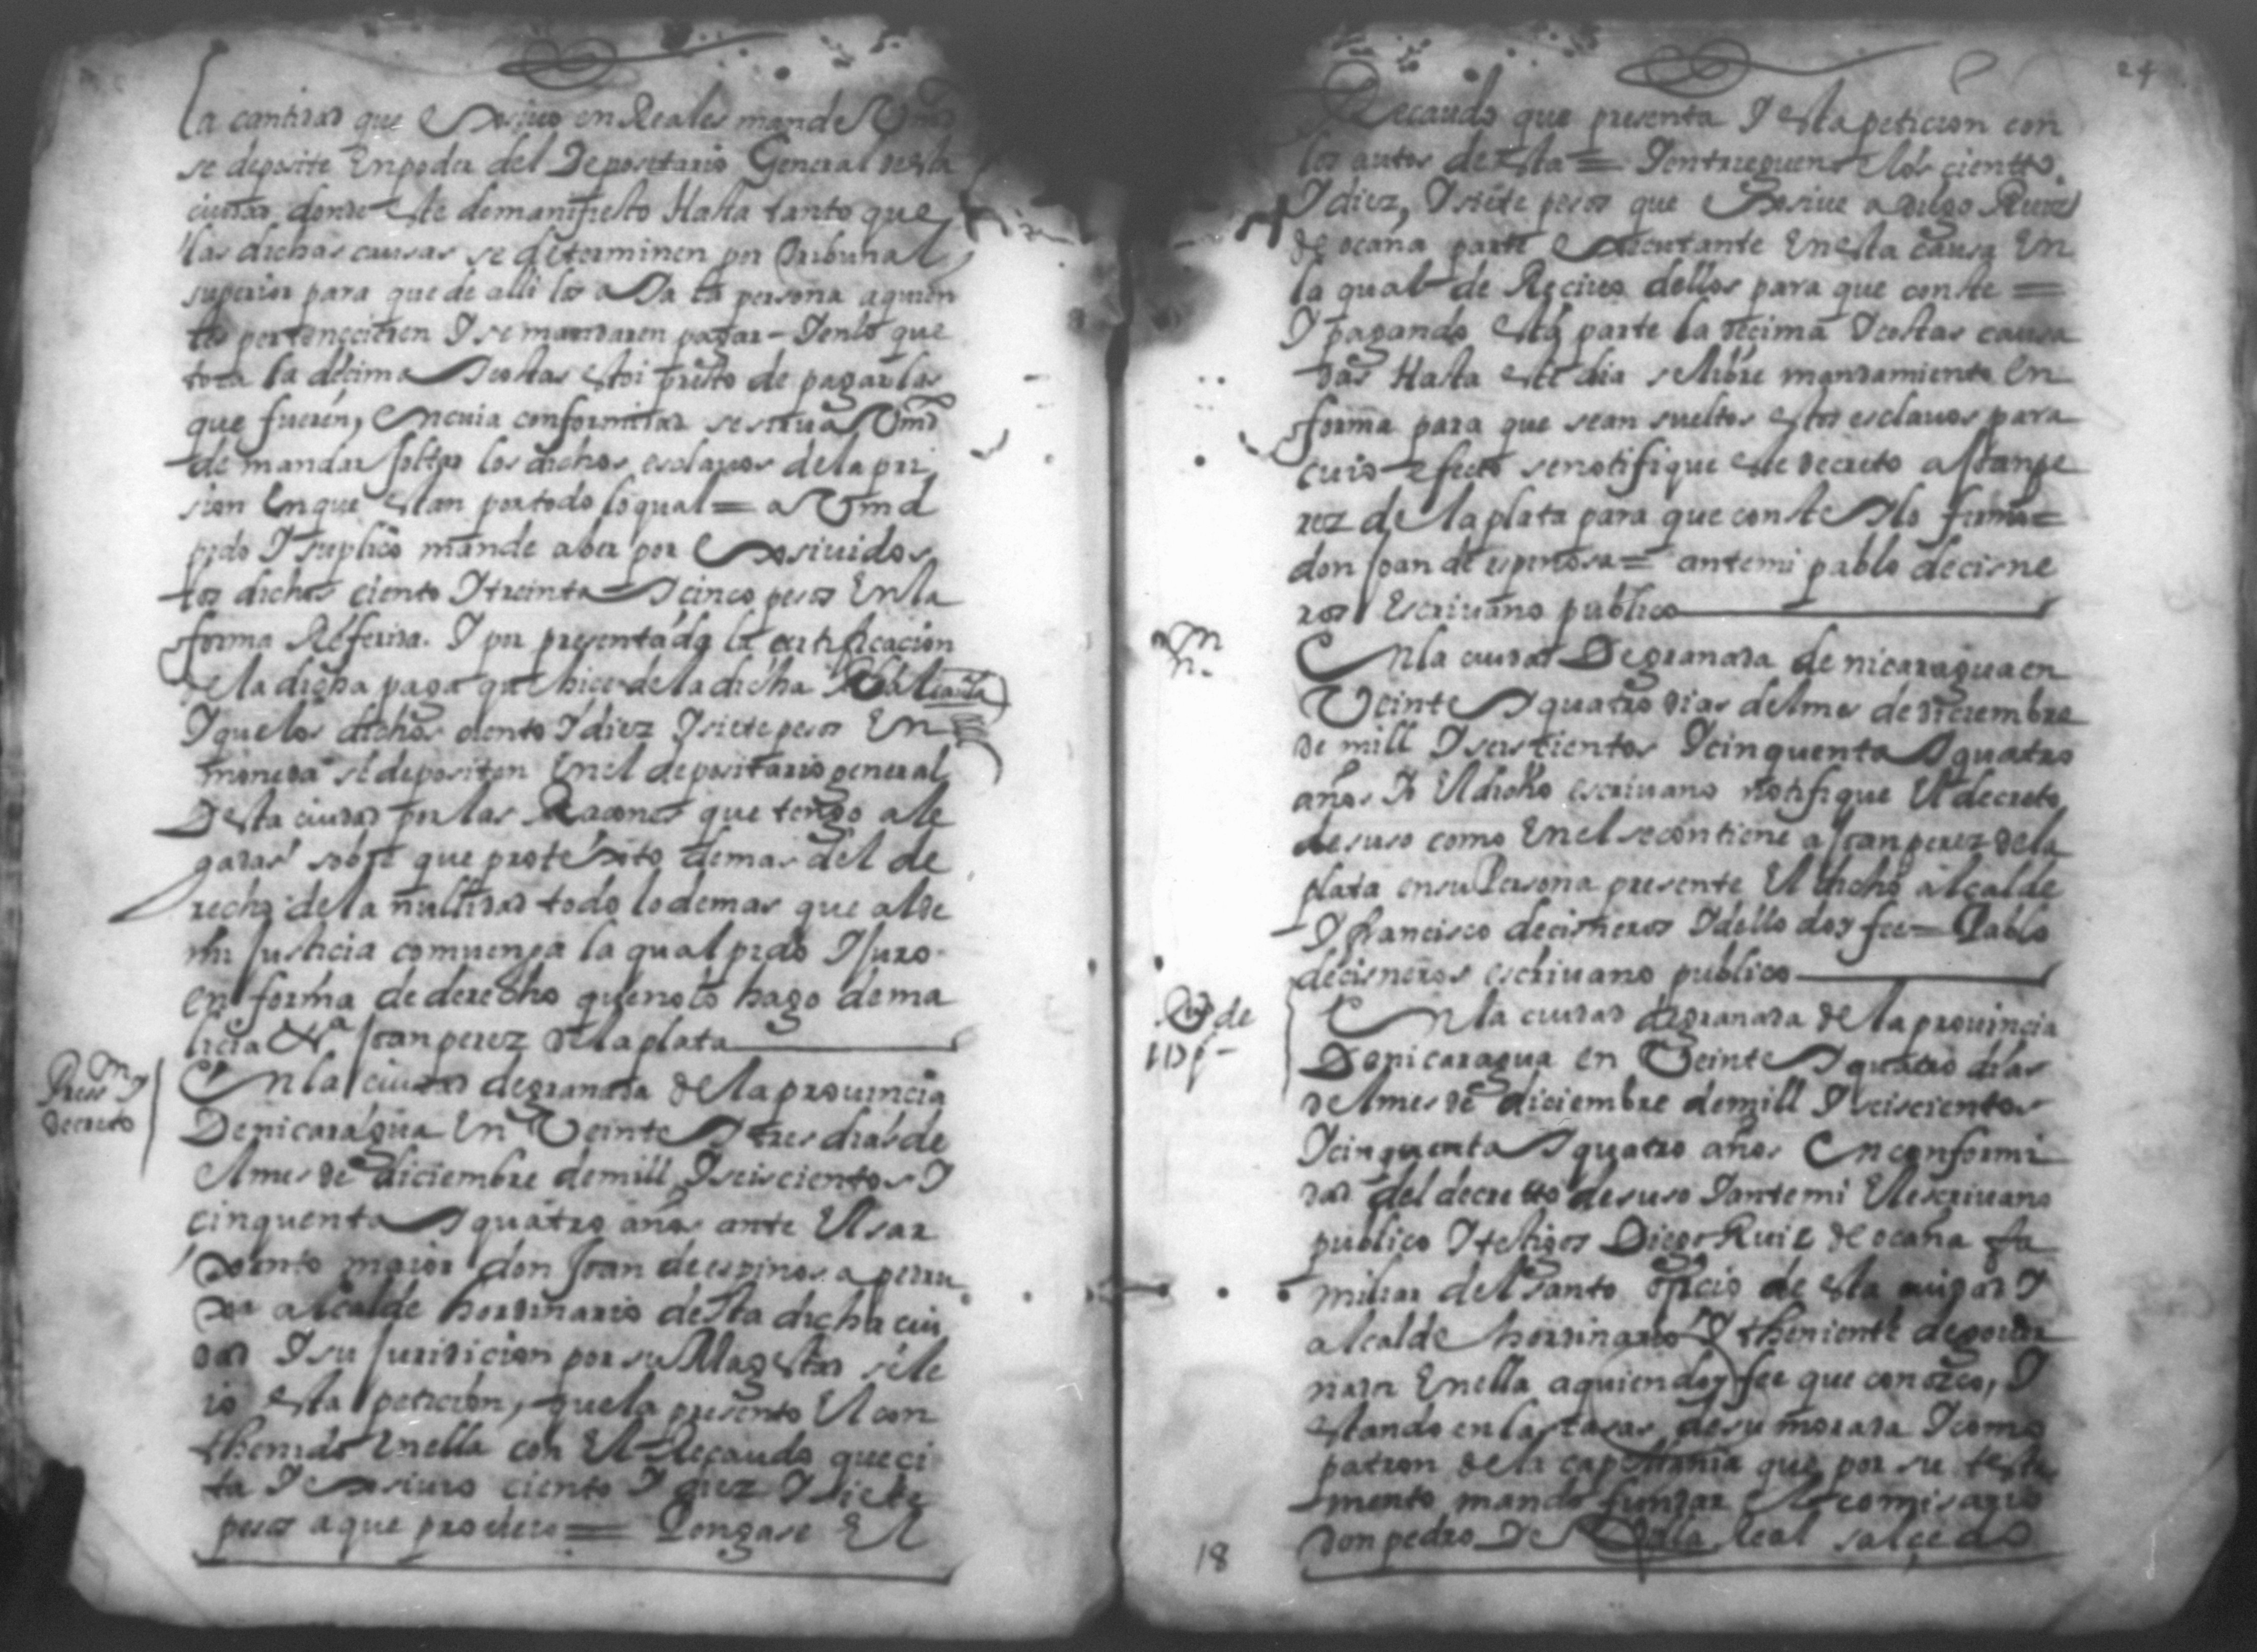 la cantidad que exsivo en Reales mande Vmd
se deposite en poder del Depositario General desta
ciudad donde este de manifiesto Hasta tanto que
las dichas causas se determinen por tribunal
superior para que de alli los a Da la persona a quien
les pertenecieren I se mandaren pagar - I en lo que
toca la decima I costas estoi presto de pagar las
que fueren, en cuia conformidad se sirva Vmd
de mandar soltar los dichos esclavos de la pri
sion en que estan por todo lo qual = a Vmd
pido I suplico mande aber por exsividos
los dichos ciento I treinta I cinco pesos En la
forma Referida. I por presentada la certificacion
de la dicha paga que hice de la dicha
I que los dichos ciento I diez I siete pesos En
moneda se depositen En el depositario general
Desta ciudad por las Racones que tengo ale
gadas sobre que protexto demas del de
recho de la nullidad todo lo demas que a l de
mi Justicia comvenga la qual pido I Juro
en forma de derecho que no lo hago de ma
licia &a Joan perez de la plata
Pressn I
decreto
En la ciudad de granada de la provincia
De nicaragua En Veinte I tres dias de
el mes de diciembre de mill I seiscientos I
cinquenta I quatro años ante El sar
xento maior don Joan de espinosa
alcalde hordinario desta dicha ciu
dad I su Juridicion por su Magestad se le
io esta peticion, que la presento El con
thenido En ella con El Recaudo que ci
ta I exsivio ciento I diez I siete
pesos a que proveio = Pongase El
24
Recaudo que presenta I esta peticion con
los autos desta = I entreguense los cientto
I diez, I siete pesos que exsive a diego Ruiz
de ocaña parte executante En esta causa En
la qual de Recivo dellos para que conste =
I pagando esta parte la decima I costas causa
das Hasta este dia se libre mandamiento En
forma para que sean sueltos estos esclavos para
cuio efecto se notifique este decreto a Joan pe
rez de la plata para que conste I lo firmo =
don Joan de espinosa = ante mi pablo de cisne
ros Escrivano publico
nn
n.
En la ciudad De granada de nicaragua en
Veinte I quatro dias del mes de diciembre
de mill I seiscientos I cinquenta I quatro
años Io El dicho escrivano notifique El decreto
de suso como En el se contiene a Joan perez de la
plata en su Persona presente El dicho alcalde
I francisco de cisneros I dello doy fee = Pablo
de cisneros escrivano publico
En la ciudad de granada de la provincia
De nicaragua en Veinte I quatro dias
del mes de diciembre de mill I seiscientos
I cinquenta I quatro años En conformi
dad del decretto de suso I ante mi El escrivano
publico I testigos Diego Ruiz de ocaña fa
miliar del santo oficio de esta ciudad I
alcalde hordinario I theniente de gover
nador En ella a quien doy fee que conozco, I
estando en las casas de su morada I como
patron de la capellania que por su testa
mento mando fundar el comisario
Don pedro De Leal salçedo
18